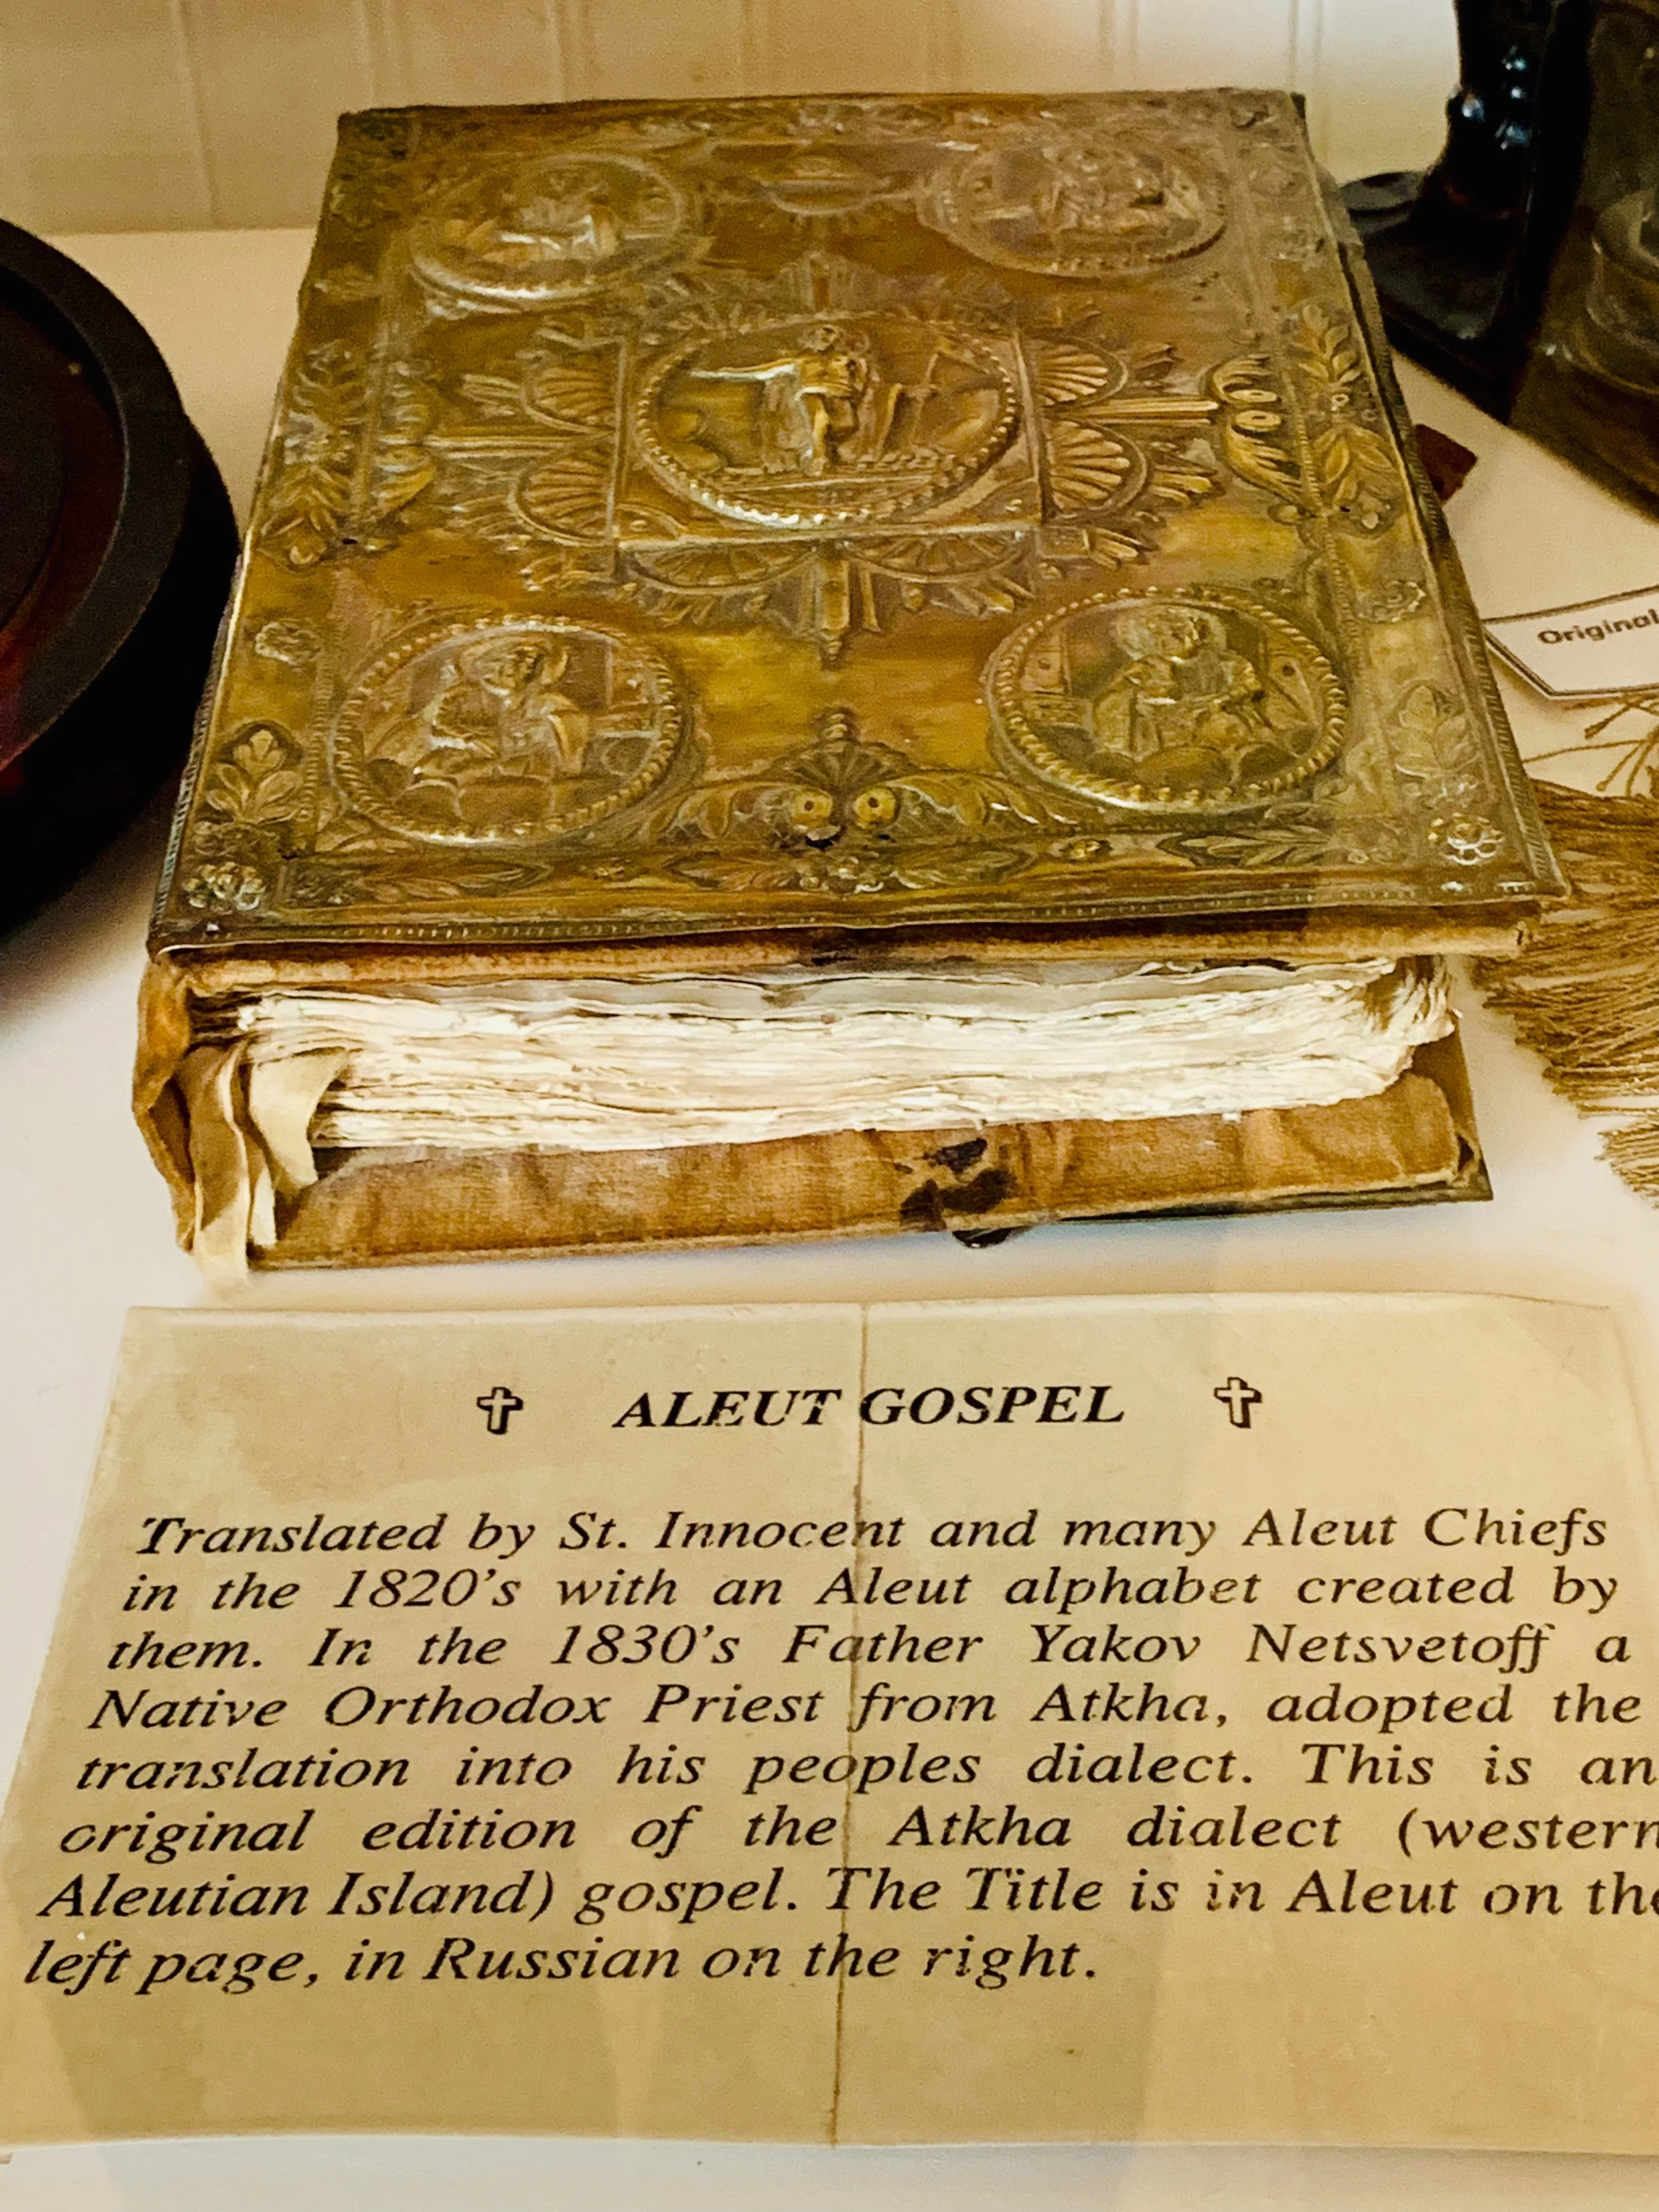 Original
✞ ALEUT GOSPEL ✞
Translated by St. Innocent and many Aleut Chiefs
in the 1820's with an Aleut alphabet created by
them. In the 1830's Father Yakov Netsvetoff a
Native Orthodox Priest from Atkha, adopted the
translation into his peoples dialect. This is an
original edition of the Atkha dialect (western
Aleutian Island) gospel. The Title is in Aleut on the
left page, in Russian on the right.